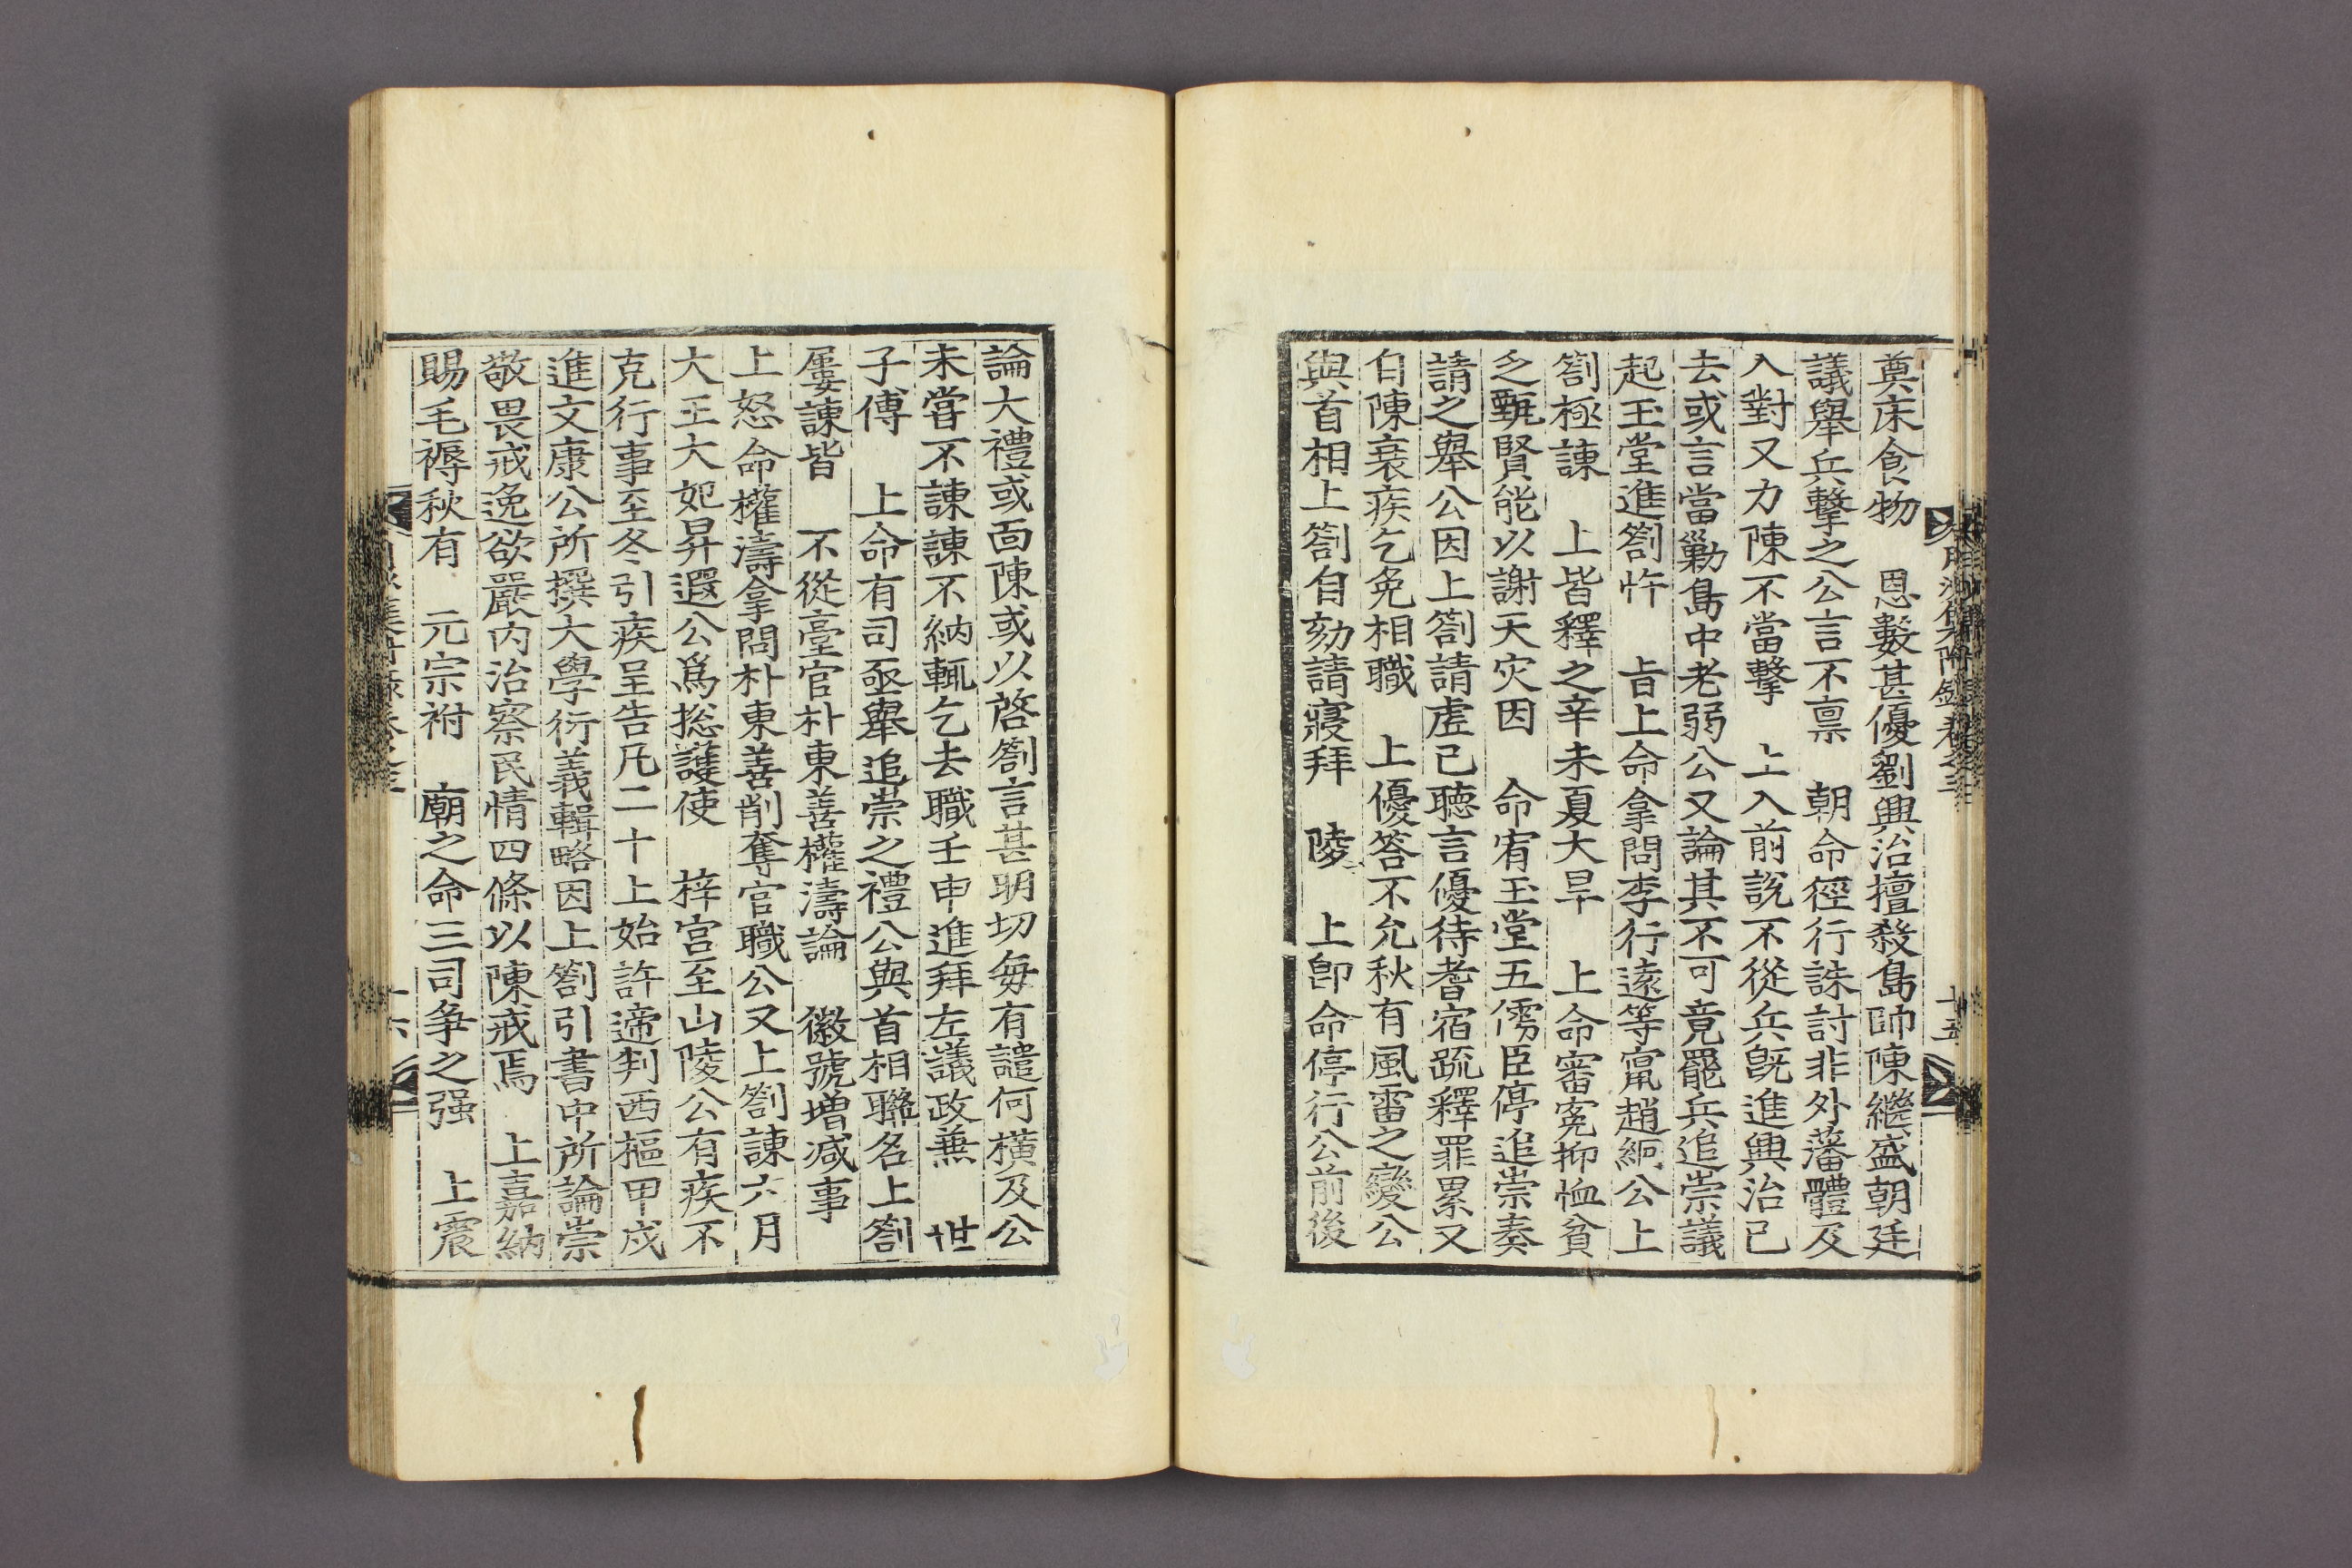 奠床食物 恩數甚優劉興治擅殺島帥陳繼盛朝廷
議舉兵擊之公言不禀 朝命徑行誅討非外藩體及
入對又力陳不當擊 上入前說不從兵旣進興治已
去或言當勦島中老弱公又論其不可竟罷兵追崇議
起玉堂進劄忤 旨上命拿問李行遠等竄趙絅公上
劄極諫 上皆釋之辛未夏大旱 上命審寃抑恤貧
乏甄賢能以謝天灾因 命宥玉堂五儒臣停追崇奏
請之舉公因上劄請虛己聽言優待耆宿疏釋罪累又
自陳衰疾乞免相職 上優答不允秋有風雷之變公
與首相上劄自劾請寢拜 陵 上卽命停行公前後
論大禮或面陳或以啓劄言甚明切每有譴何橫及公
未嘗不諫諫不納輒乞去職壬申進拜左議政兼 世
子傅 上命有司亟舉追崇之禮公與首相聯名上劄
屢諫皆 不從臺官朴東善權濤論 徽號增減事
上怒命權濤拿問朴東善削奪官職公又上劄諫六月
大王大妃昇遐公爲摠護使 梓宮至山陵公有疾不
克行事至冬引疾呈告凡二十上始許遞判西樞甲戌
進文康公所撰大學衍義輯略因上劄引書中所論崇
敬畏戒逸欲嚴內治察民情四條以陳戒焉 上嘉納
賜毛褥秋有 元宗祔 廟之命三司爭之强 上震